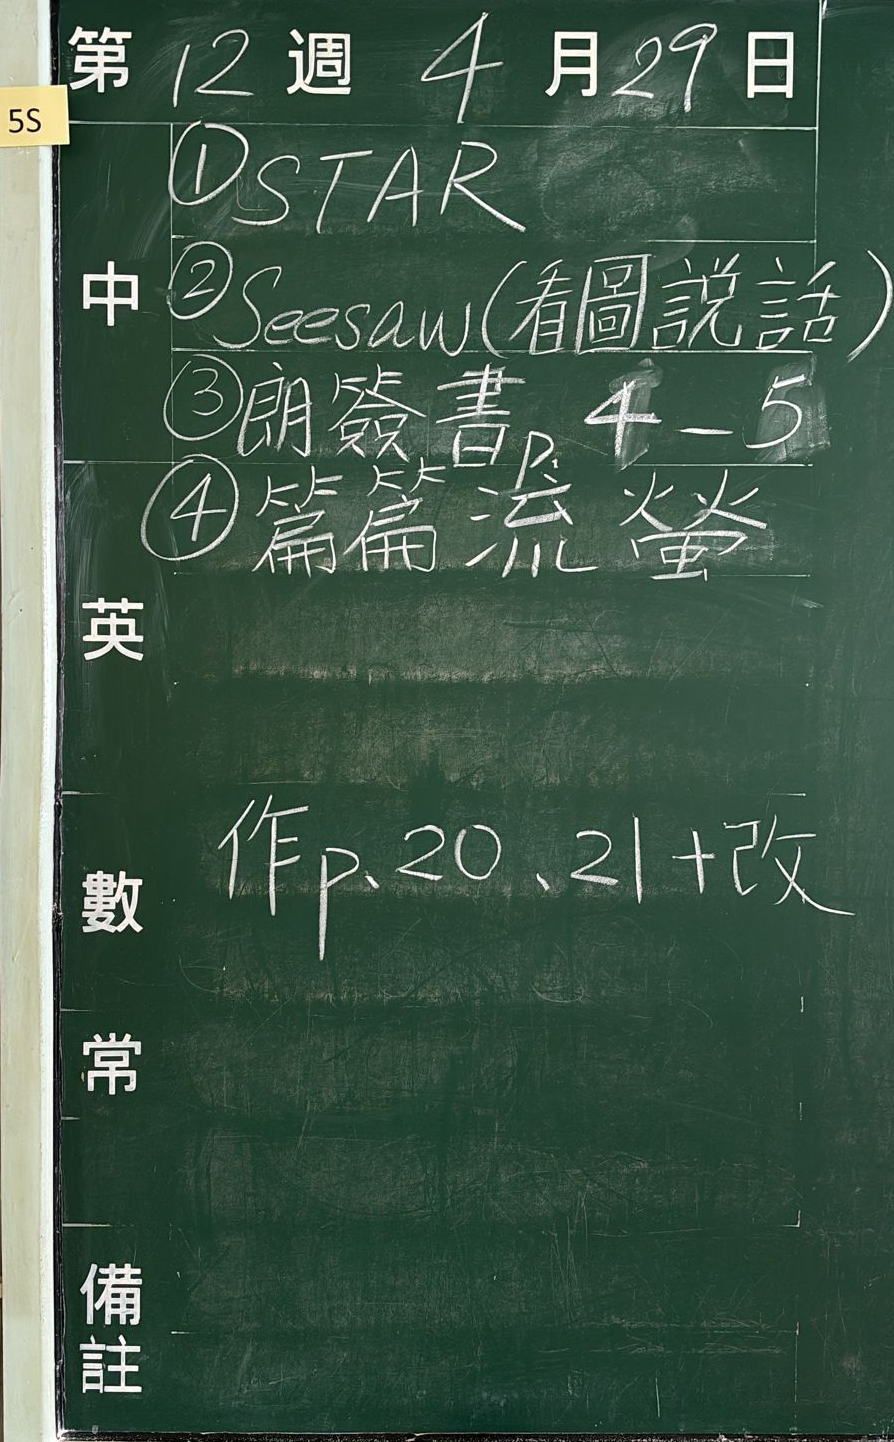 第 12 週 4 月 29 日
5S
中
①STAR
②Seesaw(看圖説話)
③朗簽書p.4-5
④篇篇流螢
英
數
作p.20、21+改
常
備註